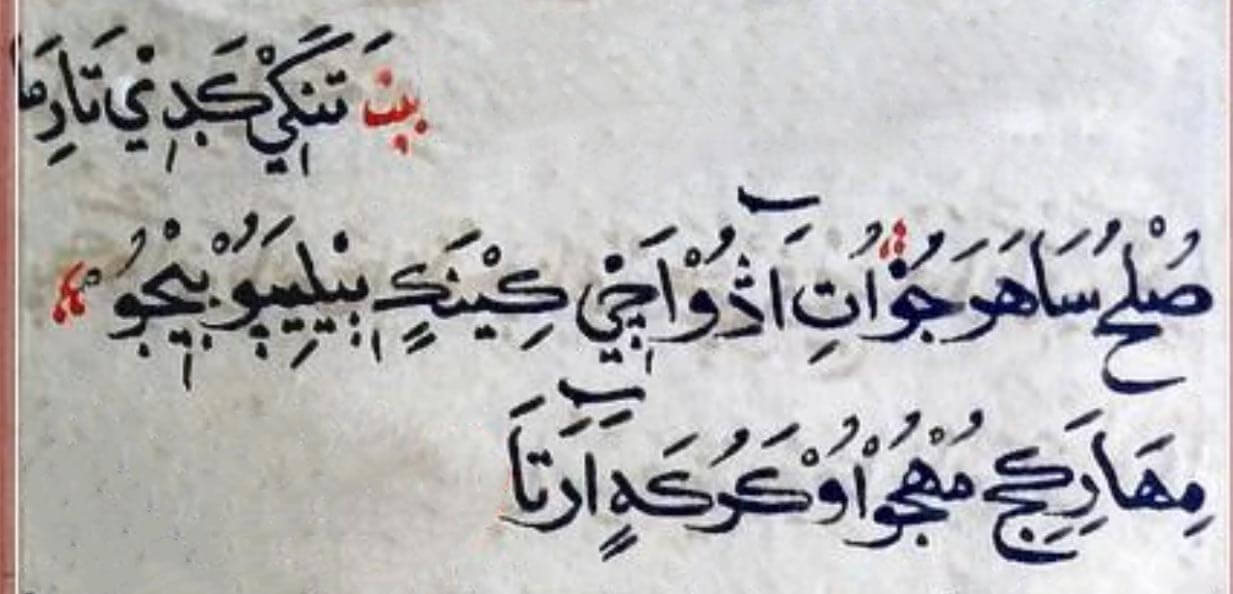 بيتَ تَنَكِيْ كَبِدِ ني تَارِمَا
صُلْحُ سَاهَرَ جُوْ اُتِ آڎُوْ اَچِي كِيْنَكٍ بيلِيپُوْ بِيْجُوْ
مِهَارِكِج مُهْجُوْ اُوْكَرُكَهٍ آرَتَا